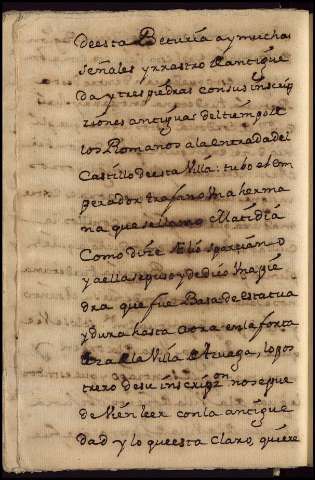 de esta Beturia ay muchas
señales y rrastro de antigue
dad y tres piedras con sus inscrip
ziones antiguas del tiempo de
los Romanos a la entrada del
Castillo de esta Villa: tubo el em
perador trajano Vna herma
na que se llamo Matidia
Como dize Elio sparciano
y a ella se puso y dedicó Vna pie
dra que fue Basa de estatua
y dura hasta aora en la forta
leza de la Villa de Azuaga, lo pos
trero de su inscripzon no se pue
de vien leer con la antigue
dad y lo que esta claro, quiere